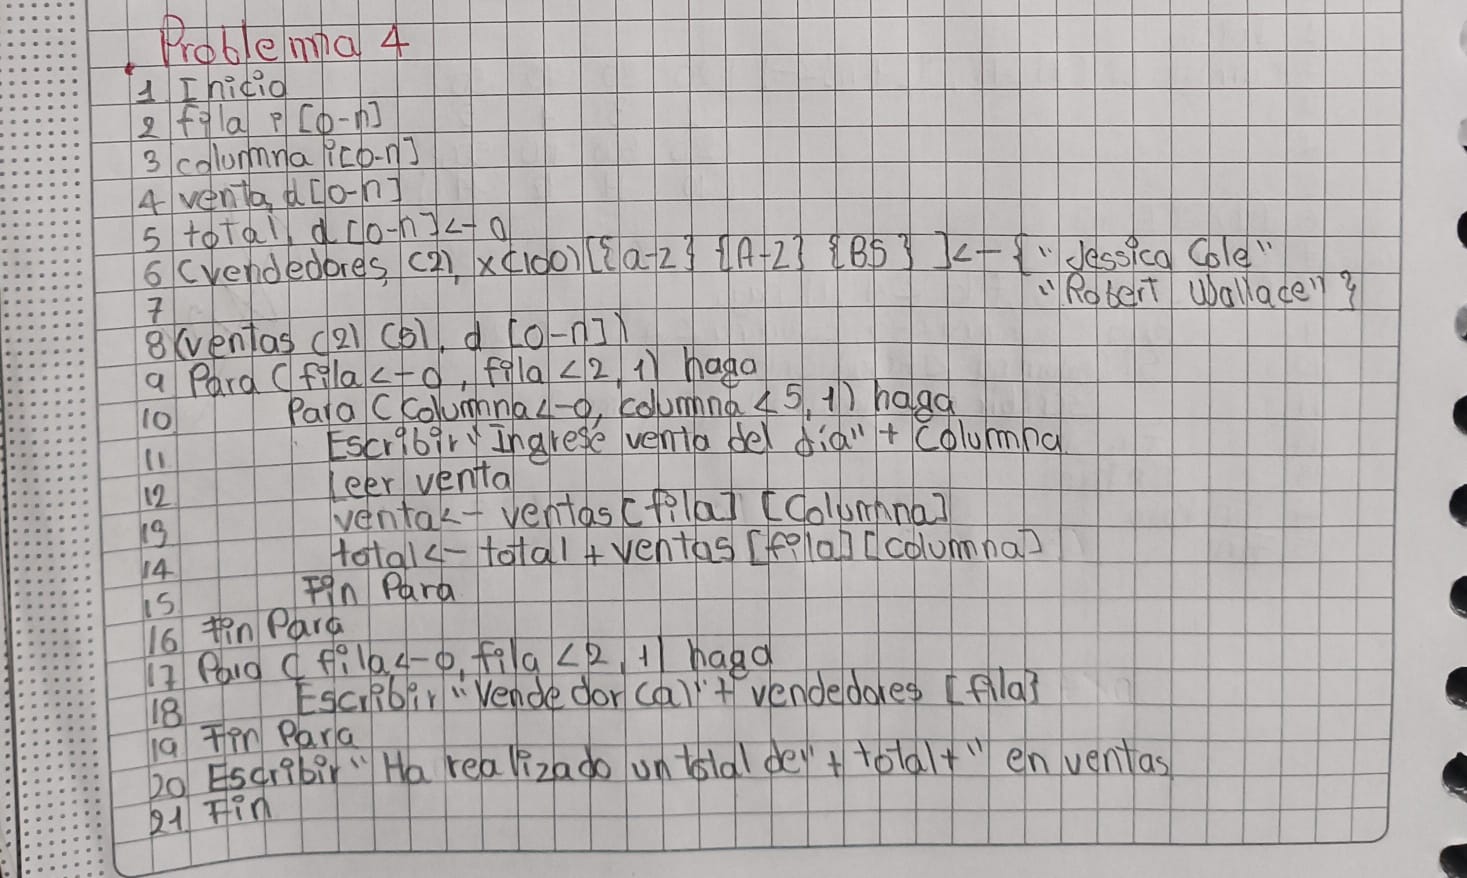 Problema 4
1 Inicio
2 fila i [0-n]
3 columna i [0-n]
4 venta, d [0-n]
5 total, d [0-n] <- 0
6 (vendedores, (2), x(100) [{a-z} {A-Z} {BS} ] <- { "Jessica Cole"
7 "Robert Wallace" }
8 (ventas (2) (5), d [0-n])
9 Para (fila <- 0, fila < 2, 1) haga
10 Para (Columna <- 0, columna < 5, 1) haga
11 Escribir "Ingrese venta del día" + Columna
12 Leer venta
13 venta <- ventas [fila] [Columna]
14 total <- total + ventas [fila] [columna]
15 Fin Para
16 Fin Para
17 Para (fila <- 0, fila < 2, 1) haga
18 Escribir "Vendedor(a)" + vendedores [fila]
19 Fin Para
20 Escribir "Ha realizado un total de" + total + " en ventas
21 Fin